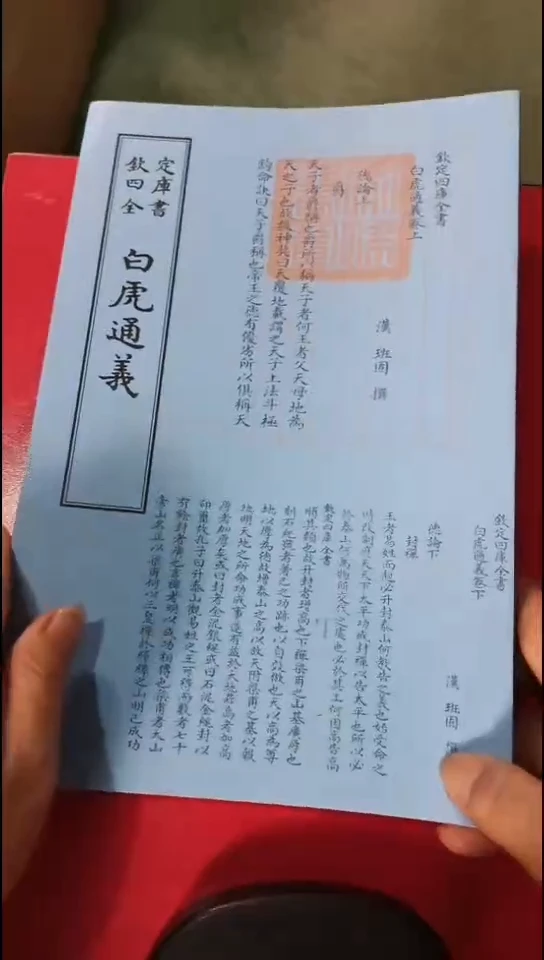 欽定
四庫
全書
白虎通義
欽定四庫全書
白虎通義卷上
漢 班固 撰
德論上
爵
天子者爵稱也爵所以稱天子者何王者父天母地為
天之子也故援神契曰天覆地載謂之天子上法斗極
鈎命訣曰天子爵稱也帝王之德有優劣所以俱稱天
欽定四庫全書
白虎通義卷下
漢 班固 撰
德論下
封禪
王者易姓而起必升封泰山何教告之義也始受命之
時改制應天天下太平功成封禪以告太平也所以必
於泰山何萬物所交代之處也必於其上何因高告高
欽定四庫全書
順其類也故升封者增高也下禪梁甫之山基廣厚也
刻石紀號者著己之功跡也以自效倣也天以高為尊
地以厚為德故增泰山之高以放天附梁甫之基以報
地明天地之所命功成事遂有益於天地若高者加高
厚者加厚矣或曰封者金泥銀繩或曰石泥金繩封以
印璽故孔子曰升泰山觀易姓之王可得而數者七十
有餘封者廣也言禪者明以成功相傳也梁甫者太山
旁山名正以梁甫何以三皇禪於繹繹之山明己成功